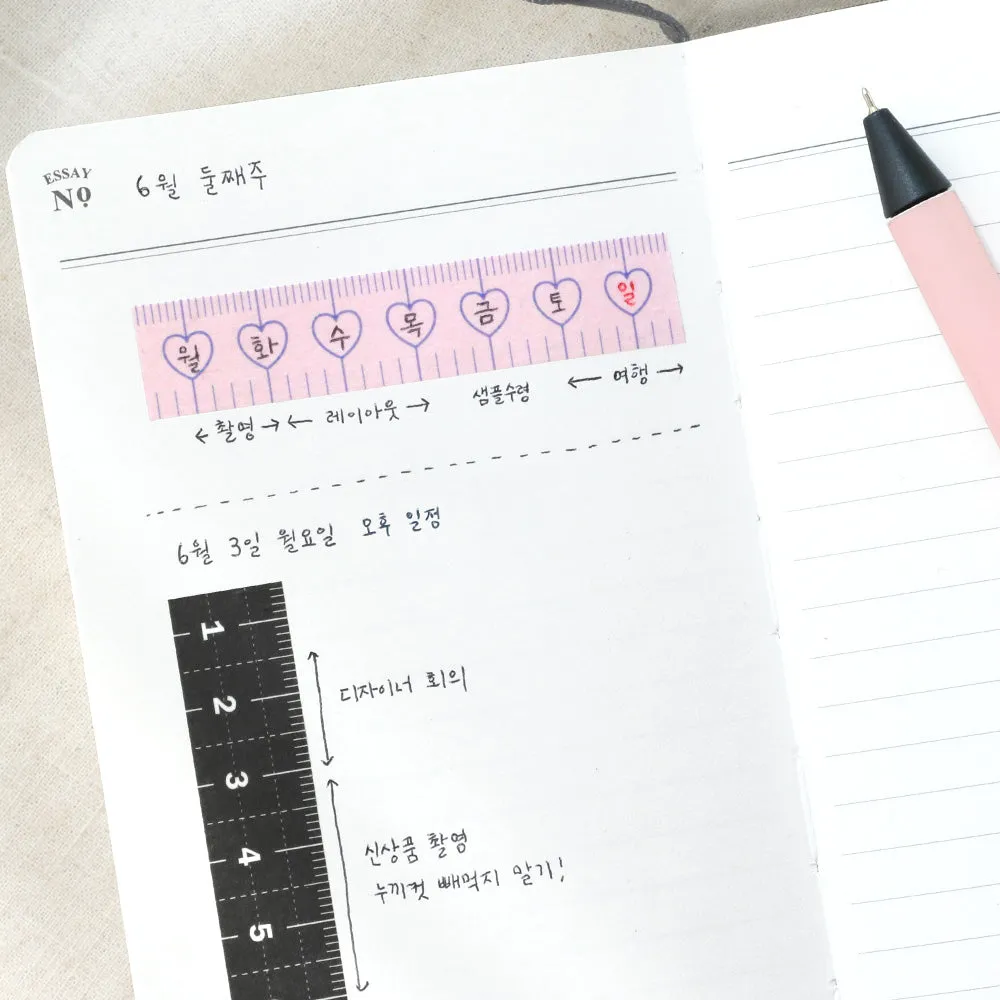 ESSAY
Nº 6월 둘째주
월 화 수 목 금 토 일
← 촬영 → ← 레이아웃 → 샘플수령 ← 여행 →
6월 3일 월요일 오후 일정
1
2
디자이너 회의
3
4
신상품 촬영
누끼컷 빼먹지 말기!
5